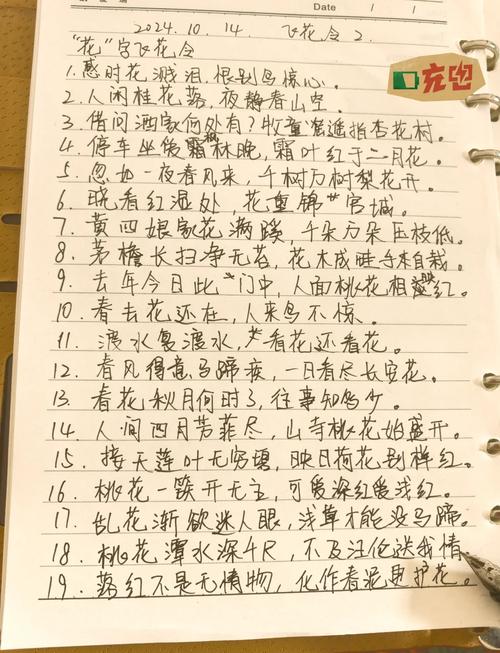 Date / /
2024.10.14. 飞花令2.
"花"字飞花令
充电
1.感时花溅泪,恨别鸟惊心。
2.人闲桂花落,夜静春山空。
3.借问酒家何处有?牧童遥指杏花村。
4.停车坐爱枫林晚,霜叶红于二月花。
5.忽如一夜春风来,千树万树梨花开。
6.晓看红湿处,花重锦官城。
7.黄四娘家花满蹊,千朵万朵压枝低。
8.茅檐长扫净无苔,花木成畦手自栽。
9.去年今日此门中,人面桃花相映红。
10.春去花还在,人来鸟不惊。
11.渡水复渡水,看花还看花。
12.春风得意马蹄疾,一日看尽长安花。
13.春花秋月何时了,往事知多少。
14.人间四月芳菲尽,山寺桃花始盛开。
15.接天莲叶无穷碧,映日荷花别样红。
16.桃花一簇开无主,可爱深红爱浅红。
17.乱花渐欲迷人眼,浅草才能没马蹄。
18.桃花潭水深千尺,不及汪伦送我情
19.落红不是无情物,化作春泥更护花。